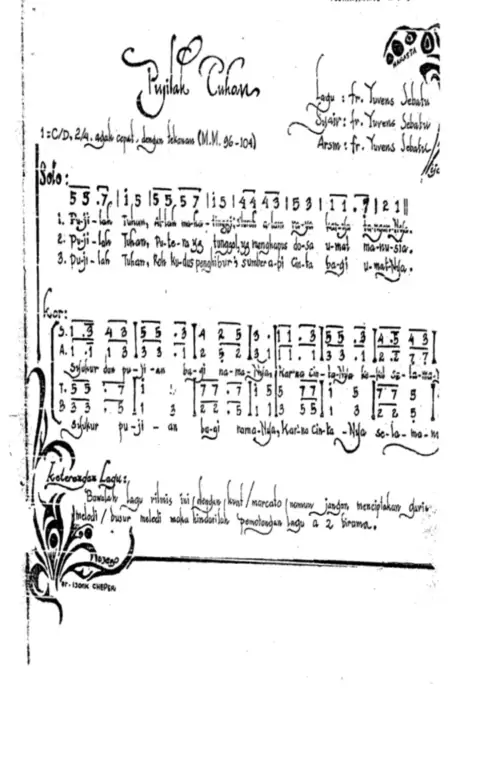 Pujilah Tuhan
Lagu : fr. Yuvens Sebatu
Syair : fr. Yuvens Sebatu
Arsm : fr. Yuvens Sebatu
1 = C/D. 2/4. agak cepat, dengan tekanan (M.M. 96-104)
Solo :
5 5 . 7 | 1 . 5 | 5 5 . 5 7 | 1 5 | 4 4 4 3 | 5 3 | 1 1 . 7 | 2 1 ||
1. Puji - lah Tuhan, Allah maha - tinggi,
2. Puji - lah Tuhan, Pu-te-ra yg tunggal, yg menghapus do-sa u-mat ma-nu-sia.
3. Puji - lah Tuhan, Roh kudus penghibur sumber a-pi Cin-ta ba-gi u-mat-Nya.
Kor :
S. 1 . 3 4 3 | 5 5 . 3 | 4 2 5 | 3 . | 1 1 . 3 | 5 5 . 3 | 4 . 5 4 3
A. 1 . 1 1 3 | 3 3 . 1 | 2 5 2 | 3 1 | 1 1 . 1 | 3 3 . 1 | 2 . 2 7 7
Syukur dan pu-ji-an ba-gi na-ma-Nya, Karna Cin-ta-Nya
T. 5 5 . 7 7 | 1
B. 3 3 . 5 | 1 3 | 2 2 . 5 | 1 1 | 3 5 5 | 1 3 | 2 2 5
Syukur pu-ji - an ba-gi nama-Nya, Karna Cin-ta - Nya se-la-ma
Keterangan Lagu :
Bawalah lagu ritmis ini (dengan kuat/marcato) namun jangan menciptakan garis
melodi / busur melodi maka hindarilah pemotongan lagu a 2 birama.